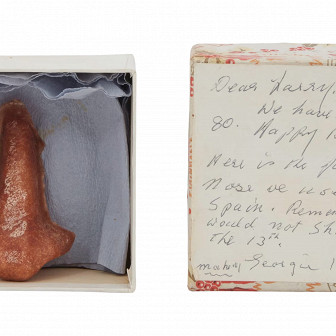 Dear Larry,
We have
80. Happy
Here is the
Nose we use
Spain. Remem
would not Sh
the 13th.
Georgie